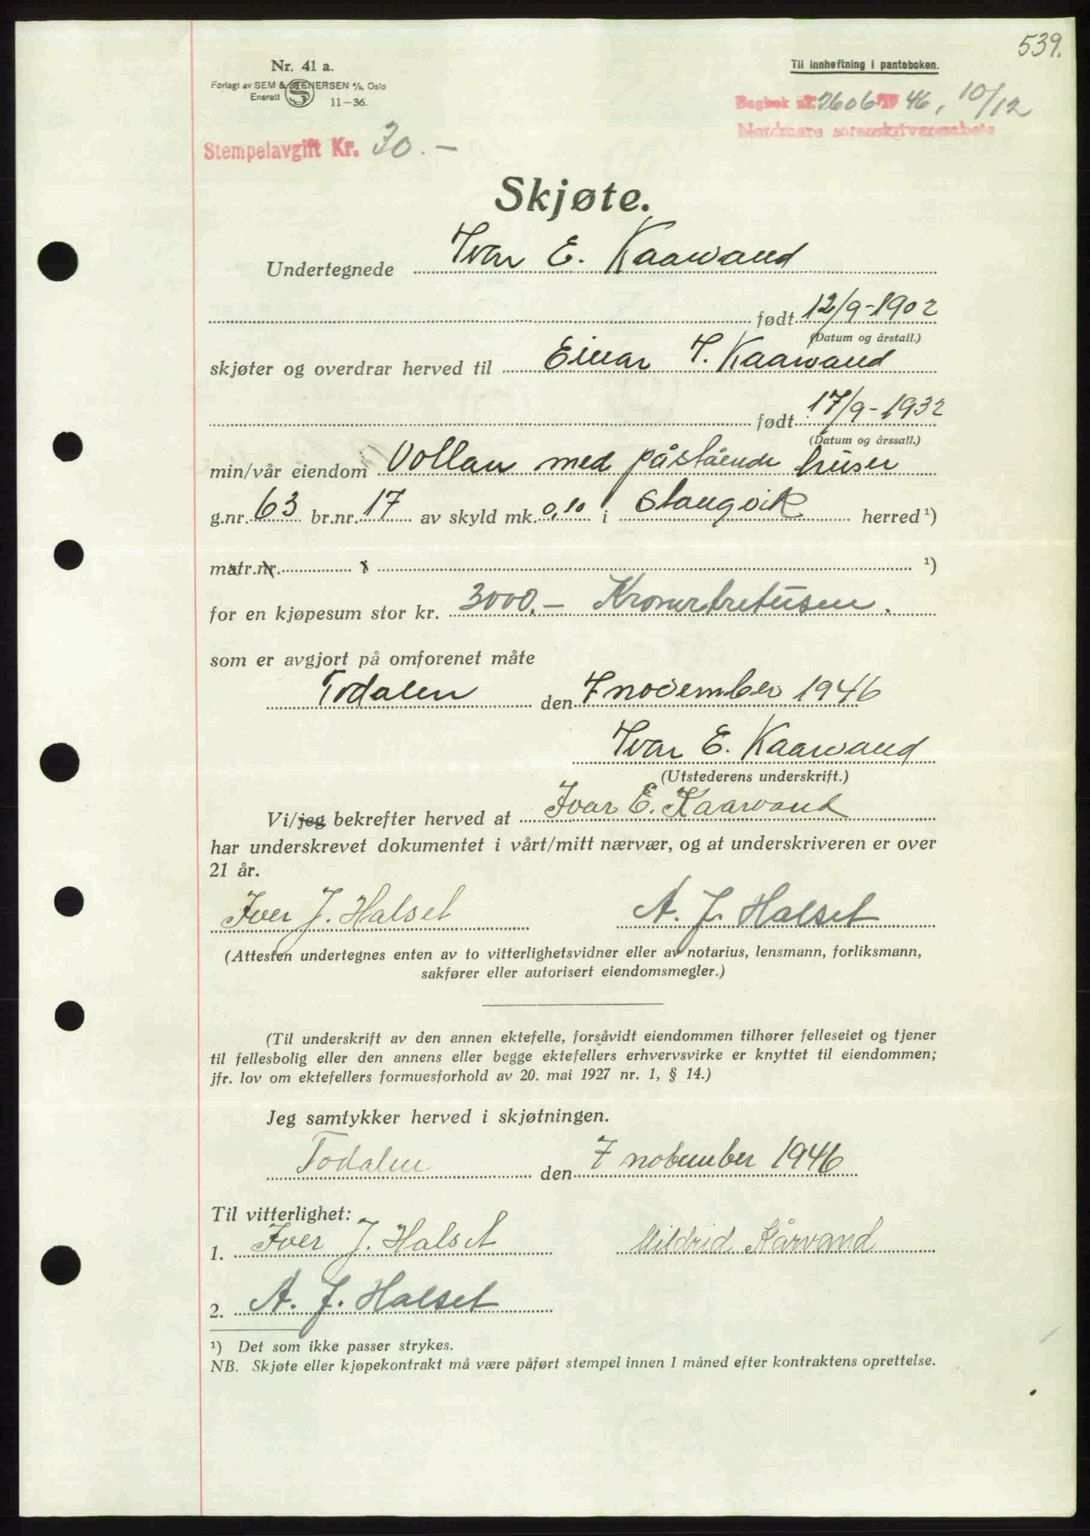 539.
Nr. 41 a.
Forlagt av SEM & STENERSEN A/S, Oslo
Enerett S 11-36.
Til innheftning i panteboken.
Dagbok nr. 2606 19 46, 10/12
Nordmøre sorenskriverembete
Stempelavgift Kr. 30.-
Skjøte.
Undertegnede Ivar E. Kaarvand
født 12/9-1902
(Datum og årstall.)
skjøter og overdrar herved til Einar I. Kaarvand
født 17/9-1932
(Datum og årssall.)
min/vår eiendom Vollan med påstående huser
g.nr. 63 br.nr. 17 av skyld mk. 0,10 i Stangvik herred ¹)
matr.nr. i ¹)
for en kjøpesum stor kr. 3000.- Kronertretusen.
som er avgjort på omforenet måte
Todalen den 7 november 1946
Ivar E. Kaarvand
(Utstederens underskrift.)
Vi/jeg bekrefter herved at Ivar E. Kaarvand
har underskrevet dokumentet i vårt/mitt nærvær, og at underskriveren er over
21 år.
Iver J. Halset A. J. Halset
(Attesten undertegnes enten av to vitterlighetsvidner eller av notarius, lensmann, forliksmann,
sakfører eller autorisert eiendomsmegler.)
(Til underskrift av den annen ektefelle, forsåvidt eiendommen tilhører felleseiet og tjener
til fellesbolig eller den annens eller begge ektefellers erhvervsvirke er knyttet til eiendommen;
jfr. lov om ektefellers formuesforhold av 20. mai 1927 nr. 1, § 14.)
Jeg samtykker herved i skjøtningen.
Todalen den 7 november 1946
Til vitterlighet:
1. Iver J. Halset Mildrid Kårvand
2. A. J. Halset
¹) Det som ikke passer strykes.
NB. Skjøte eller kjøpekontrakt må være påført stempel innen 1 måned efter kontraktens oprettelse.